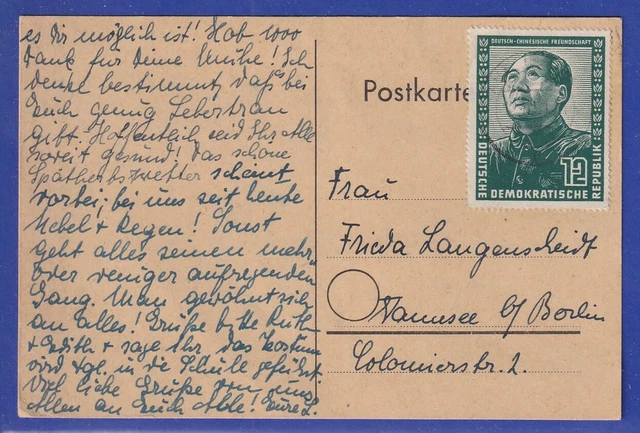 es Dir möglich ist! Hab 1000
Dank für Deine Mühe! Ich
denke bestimmt, daß bei
Euch genug Lebertran
gibt. Hoffentlich seid Ihr Alle
soweit gesund! Das schöne
Spätherbstwetter scheint
vorbei; bei uns seit heute
Nebel + Regen! Sonst
geht alles seinen mehr
oder weniger aufregenden
Gang. Man gewöhnt sich
an Alles! Grüße bitte Ruth
+ Edith + sage Ihr, das Kostüm
wird tgl. in die Schule geführt.
Viel liebe Grüße von uns
Allen an Euch Alle! Eure L.
Postkarte
DEUTSCH-CHINESISCHE FREUNDSCHAFT
12
DEUTSCHE DEMOKRATISCHE REPUBLIK
Frau
Frieda Langenscheidt
Wannsee b/ Berlin
Colomierstr. 2.